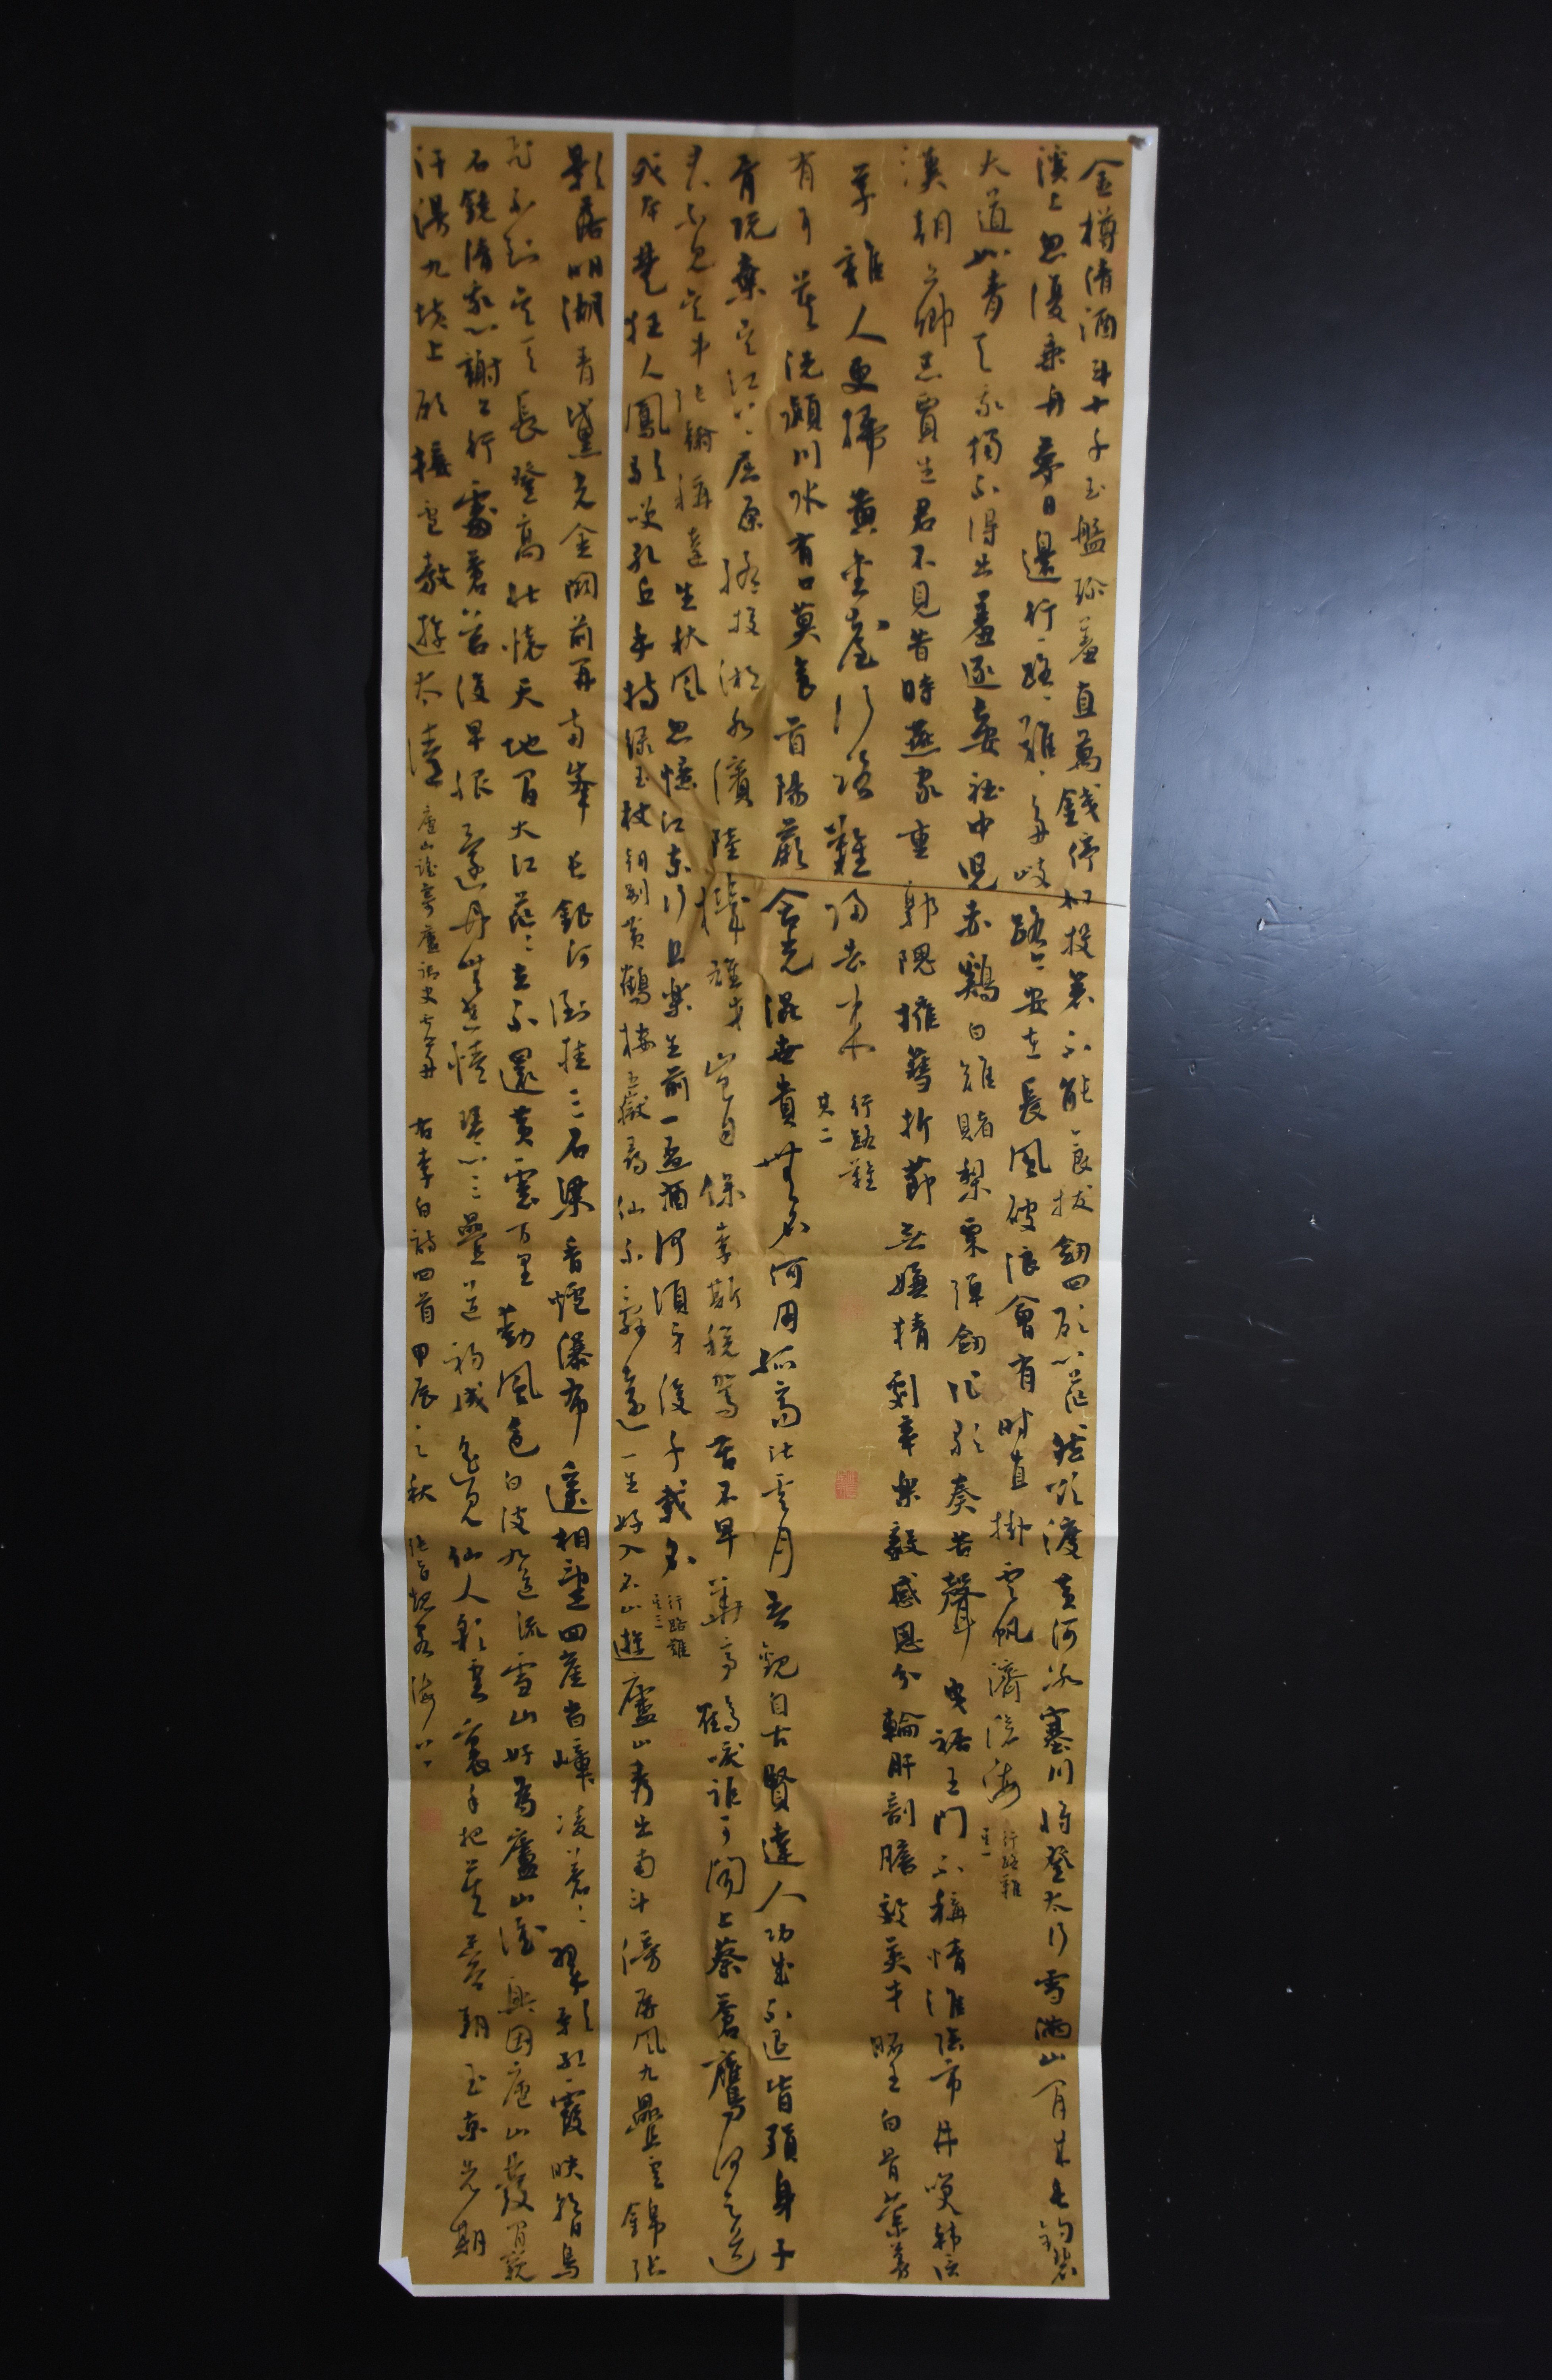 金樽清酒斗十千玉盤珍羞直萬錢停杯投箸不能食拔劍四顧心茫然欲渡黃河冰塞川將登太行雪滿山閒來垂釣碧
溪上忽復乘舟夢日邊行〻路〻難〻多岐路今安在長風破浪會有時直掛雲帆濟滄海 行路難其一
大道如青天我獨不得出羞逐長安社中兒赤鷄白雉賭梨栗彈劍作歌奏苦聲曳裾王門不稱情淮陰市井笑韓信
漢朝公卿忌賈生君不見昔時燕家重郭隗擁篲折節無嫌猜劇辛樂毅感恩分輸肝剖膽效英才昭王白骨縈蔓
草誰人更掃黃金臺行路難歸去來 行路難其二
有耳莫洗潁川水有口莫食首陽蕨含光混世貴無名何用孤高比雲月吾觀自古賢達人功成不退皆殞身子
胥既棄吳江上屈原終投湘水濱陸機雄才豈自保李斯稅駕苦不早華亭鶴唳詎可聞上蔡蒼鷹何足道
君不見吳中張翰稱達生秋風忽憶江東行且樂生前一盃酒何須身後千載名 行路難其三
我本楚狂人鳳歌笑孔丘手持綠玉杖朝別黃鶴樓五嶽尋仙不辭遠一生好入名山遊廬山秀出南斗傍屏風九疊雲錦張
影落明湖青黛光金闕前開二峯長銀河倒挂三石梁香爐瀑布遙相望四崖沓嶂凌蒼〻翠影紅霞映朝日鳥
飛不到吳天長登高壯懷天地間大江茫〻去不還黃雲萬里動風色白波九道流雪山好為廬山謠興因廬山發閒窺
石鏡清我心謝公行處蒼苔沒早服還丹無世情琴心三疊道初成遙見仙人彩雲裏手把芙蓉朝玉京先期
汗漫九垓上願接盧敖遊太清 廬山謠寄盧侍御虛舟 右李白詩四首甲辰之秋